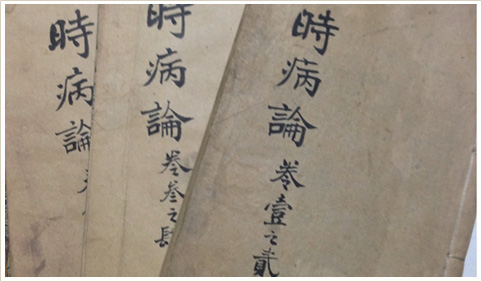 時病論卷壹之貳
時病論卷叁之
時病論